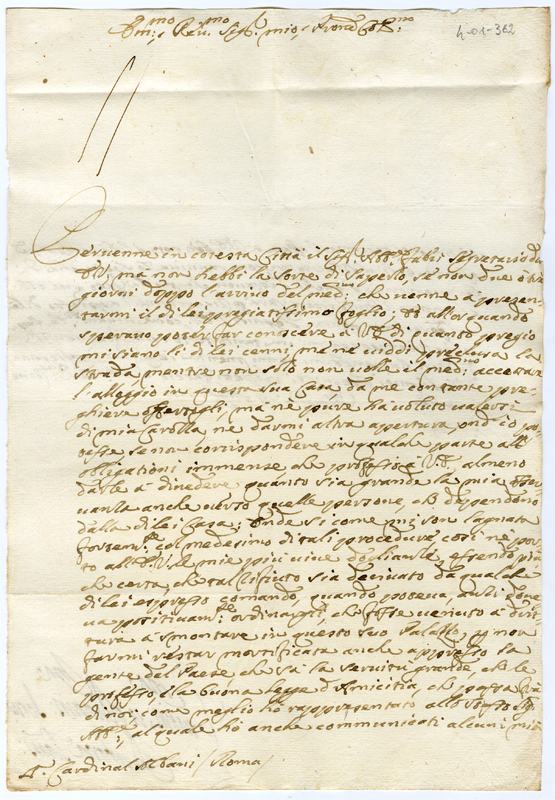 Em.mo e Rev.mo Sig.r mio, e Pron̄e Col.mo
401-362
Pervenne in cotesta Città il Sig.r Abb.e Fabri segretario di
V.E., ma non hebbi la sorte di saperlo, se non due o tre
giorni doppo l'arrivo del med.mo che venne a presen-
tarmi il di lei pregiatissimo foglio; Et allor quando
speravo poter far conoscere a V.E. di quanto pregio
mi siano li di lei cenni, me ne viddi preclusa la
strada, mentre non solo non volle il med.mo accettare
l'alloggio in questa sua Casa, da me con tante pre-
ghiere offertogli, ma nè pure ha voluto valersi
di mia Carozza, nè darmi altra apertura, ond'io po-
tessi se non corrispondere in qualche parte all'
obligationi immense che professo a V.E. almeno
darle a divedere quanto sia grande la mia osser-
vanza anche verso quelle persone, che dipendono
dalla di lei Casa; Onde si come mi son lagnata
col medesimo di tali procedure, così ne por-
to all'E.V. le mie più vive doglianze, essendo più
che certa, che tal rifiuto sia derivato da qualche
di lei espresso comando, quando poteva, anzi dove-
va positivam.te ordinargli, che fosse venuto a dirit-
tura a smontare in questo suo Palazzo, p non
farmi restar mortificata anche appresso la
gente del Paese, che sà la servitù grande, che le
professo, e la buona legge d'Amicitia, che passa trà
di noi, come meglio hò rappresentato allo stesso Sig.r
Abb.e, al quale hò anche communicati alcuni miei
S.r Cardinal Albani / Roma /